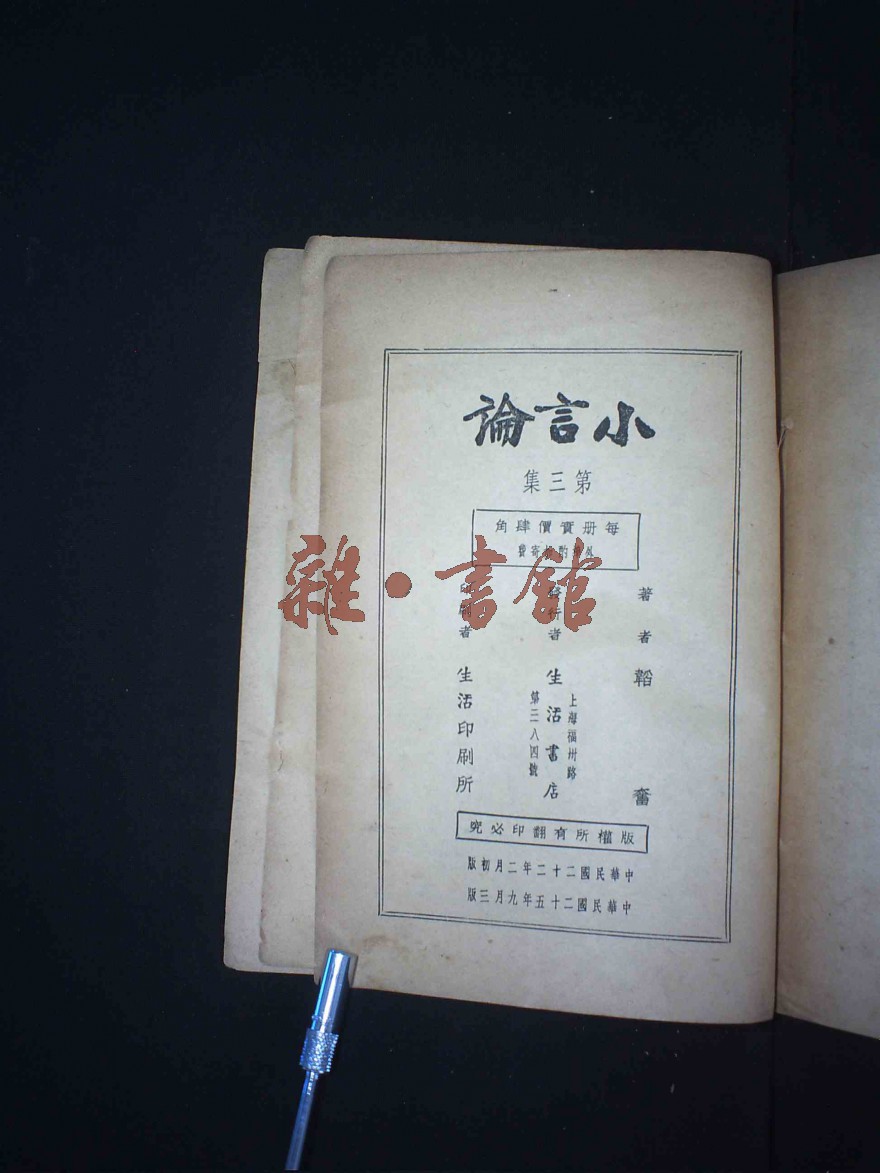 小言論
第三集
每册實價肆角
外埠酌加寄費
著者 韜奮
發行者 生活書店
上海福州路
第三八四號
印刷者 生活印刷所
版權所有翻印必究
中華民國二十二年二月初版
中華民國二十五年九月三版
雜·書館